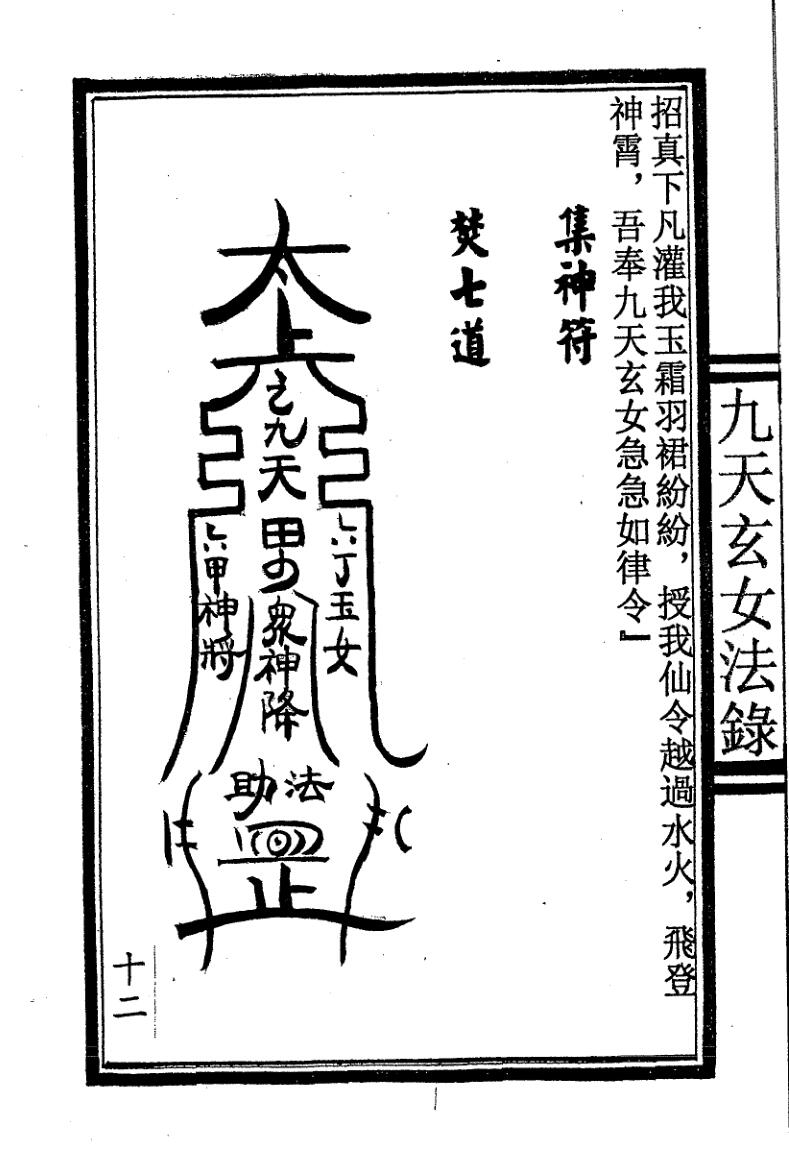 九天玄女法錄
招真下凡灌我玉霜羽裙紛紛，授我仙令越過水火，飛登
神霄，吾奉九天玄女急急如律令』
集神符
焚七道
太上
之九天
六丁玉女
眾神降
六甲神將
助法
止
十二